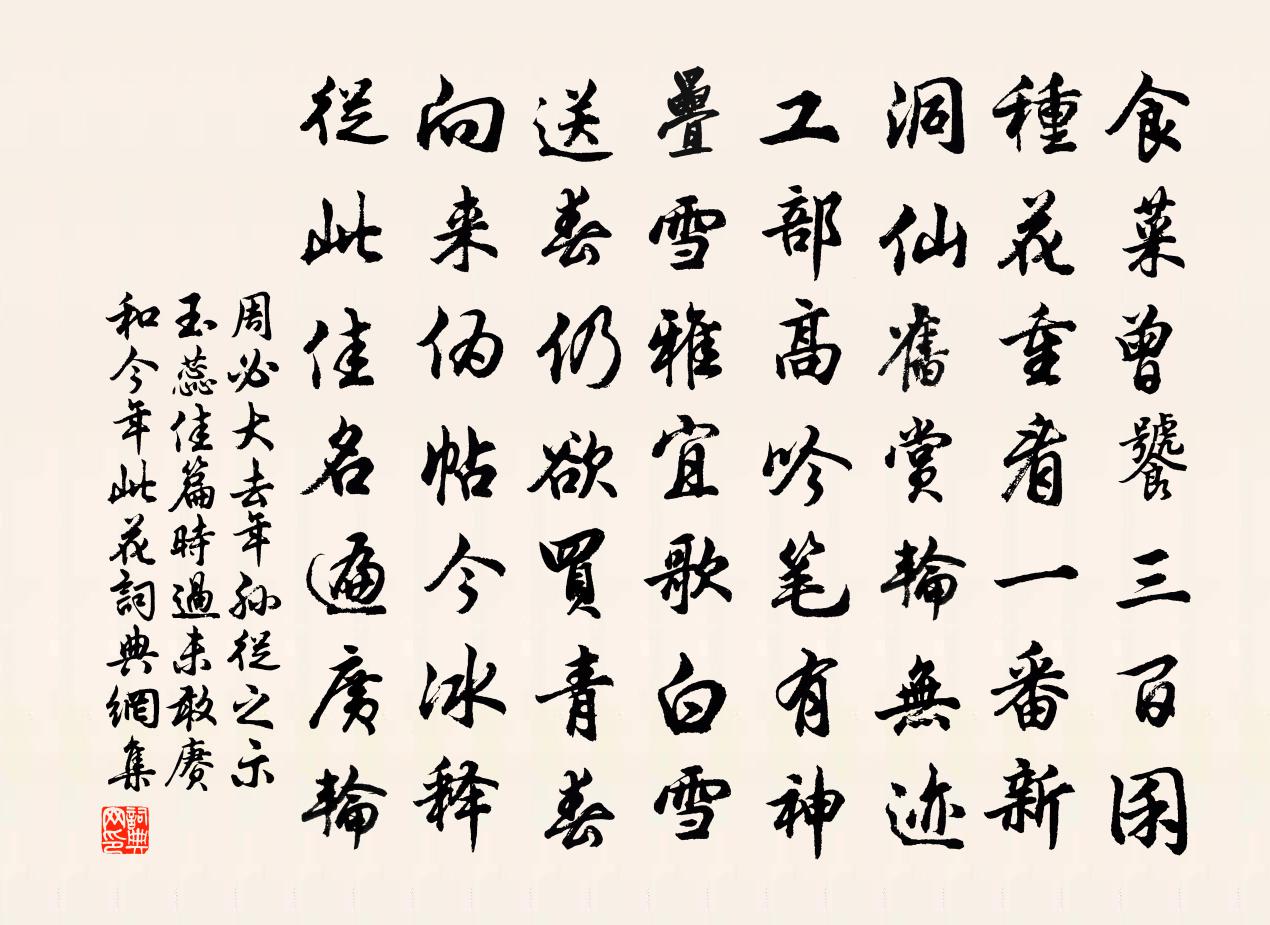 食菜曾饕三百囷
種花重看一番新
洞仙舊賞輪無迹
工部高吟笔有神
疊雪雅宜歌白雪
送春仍欲買青春
向来俩帖今冰释
從此佳名遍廣輪
周必大去年孙從之示
玉蕊佳篇時過未敢赓
和今年此花詞典網集
詞典
网印